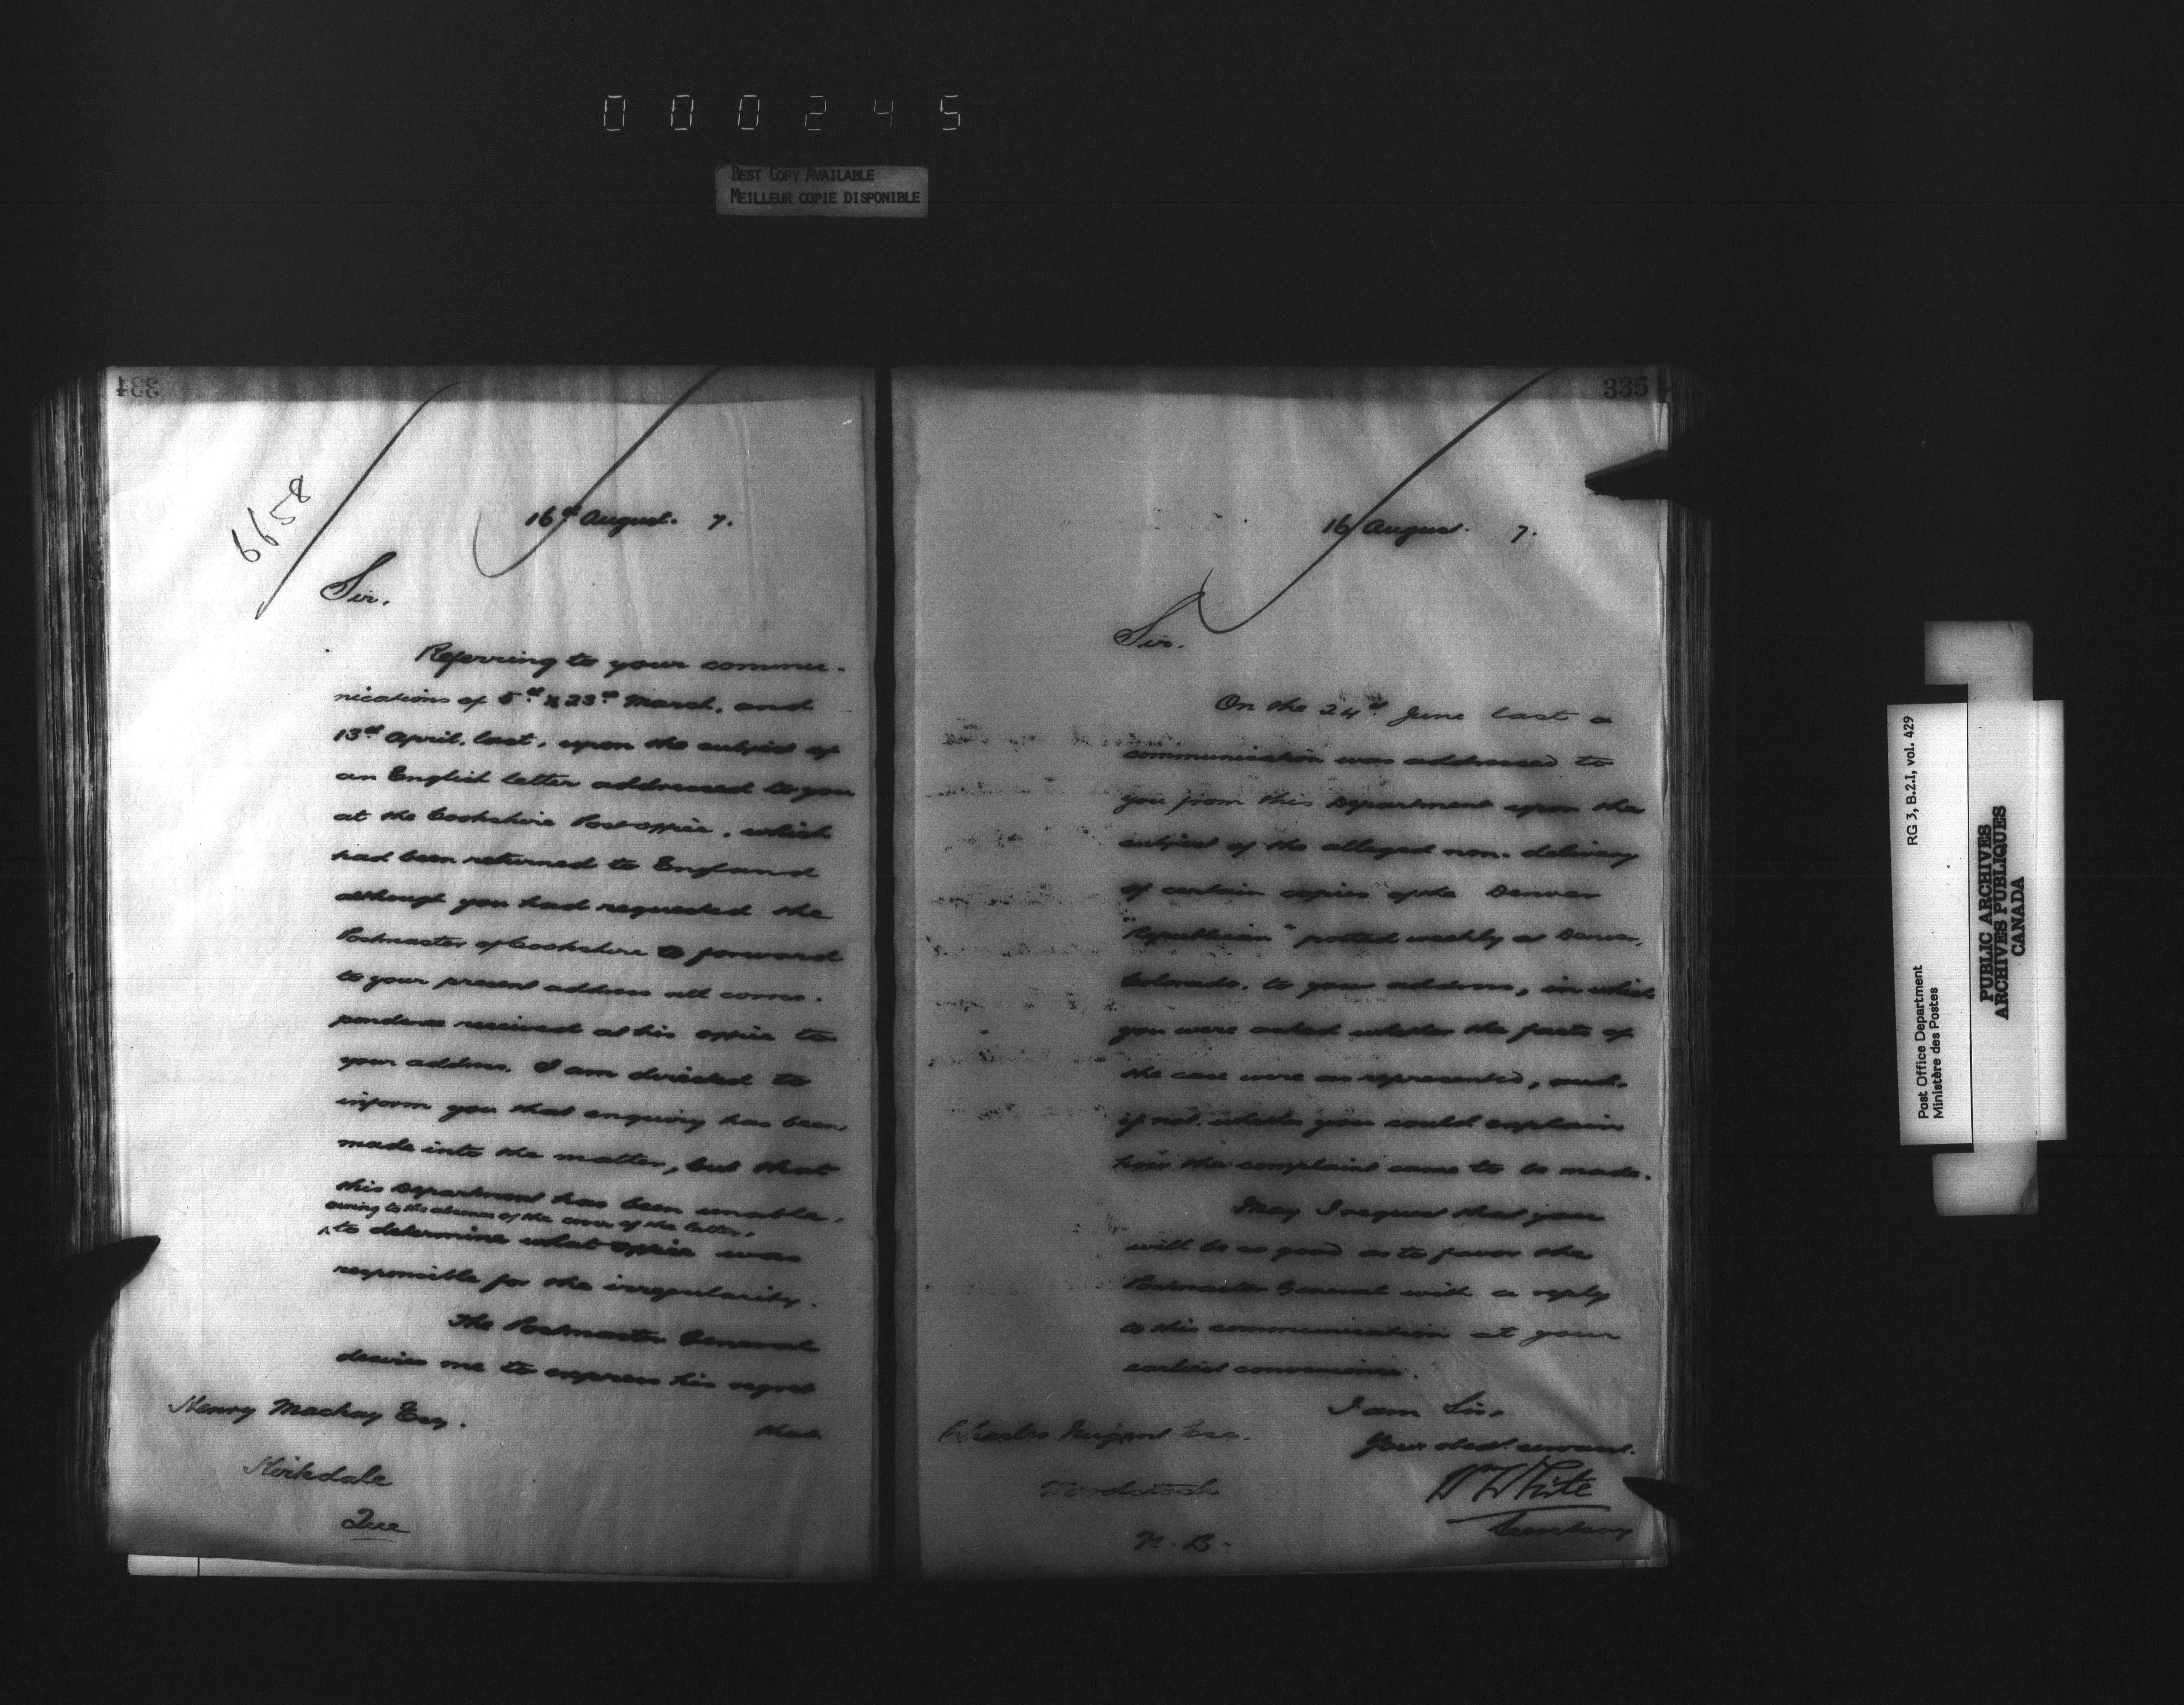 000245
BEST COPY AVAILABLE
MEILLEUR COPIE DISPONIBLE
334
6658
16th August. 7.
Sir.
Referring to your commu-
nications of 5th & 23rd March, and
13th April, last, upon the subject of
an English letter addressed to you
at the Cookshire Post office, which
had been returned to England
although you had requested the
Postmaster of Cookshire to forward
to your present address all corres-
pondence received at his office to
your address. I am directed to
inform you that enquiry has been
made into the matter, but that
this Department has been unable,
owing to the absence of the cover of the letter,
^ to determine what office was
responsible for the irregularity.
The Postmaster General
desires me to express his regret
that
Henry Mackay Esq.
Kirkdale
Que
335
16 August. 7.
Sir.
On the 24th June last a
communication was addressed to
you from this Department upon the
subject of the alleged non-delivery
of certain copies of the Denver
"Republican" posted weekly at Denver,
Colorado, to your address, in which
you were asked whether the facts of
the case were as represented, and
if not, whether you could explain
how the complaint came to be made.
May I request that you
will be so good as to favor the
Postmaster General with a reply
to this communication at your
earliest convenience.
I am Sir,
Your obedt. servant.
Wm White
Secretary
Charles Nugent Esq.
Woodstock
N.B.
Post Office Department RG 3, B.2.I, vol. 429
Ministère des Postes
PUBLIC ARCHIVES
ARCHIVES PUBLIQUES
CANADA